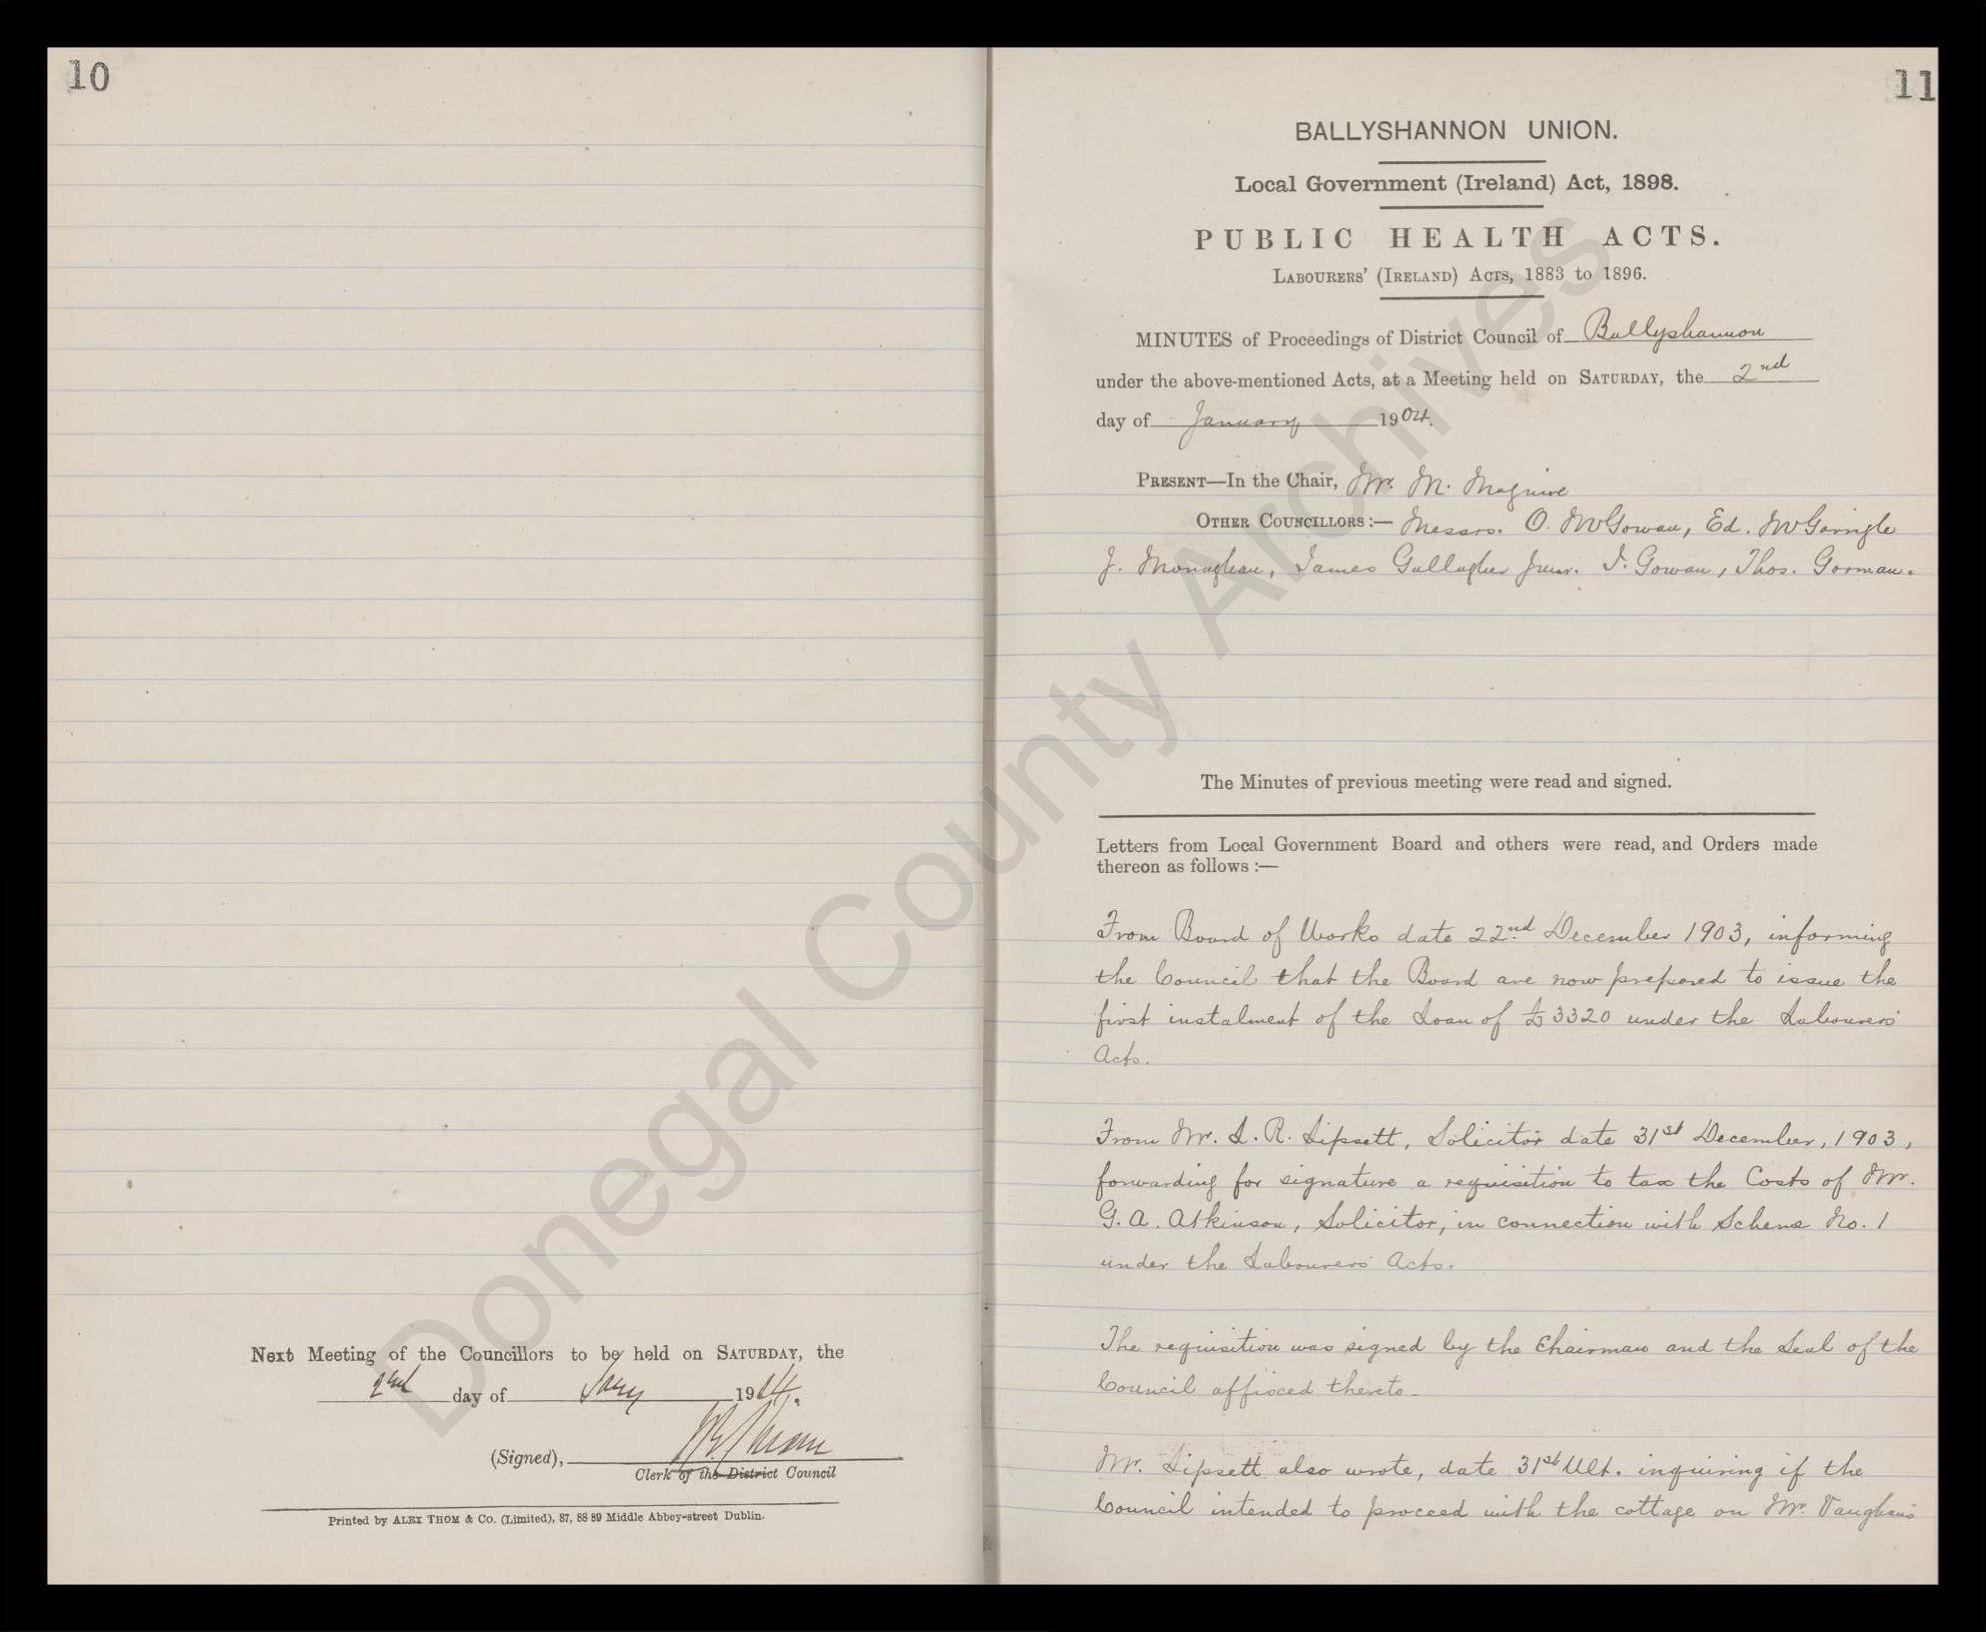 10
Next Meeting of the Councillors to be held on SATURDAY, the
2nd day of Jany 1904.
(Signed),
Clerk of the District Council
Printed by ALEX THOM & Co. (Limited), 87, 88 89 Middle Abbey-street Dublin.
11
BALLYSHANNON UNION.
Local Government (Ireland) Act, 1898.
PUBLIC HEALTH ACTS.
LABOURERS' (IRELAND) ACTS, 1883 to 1896.
MINUTES of Proceedings of District Council of Ballyshannon
under the above-mentioned Acts, at a Meeting held on SATURDAY, the 2nd
day of January 1904.
PRESENT—In the Chair, Mr. M. Maguire
OTHER COUNCILLORS:— Messrs. O. McGowan, Ed. McGarrigle
J. Monaghan, James Gallagher Junr. Gowan, Thos. Gorman.
The Minutes of previous meeting were read and signed.
Letters from Local Government Board and others were read, and Orders made
thereon as follows :—
From Board of Works date 22nd December 1903, informing
the Council that the Board are now prepared to issue the
first instalment of the Loan of £3320 under the Labourers'
Acts.
From Mr. L. R. Lipsett, Solicitor date 31st December, 1903,
forwarding for signature a requisition to tax the Costs of Mr.
G. A. Atkinson, Solicitor, in connection with Scheme No. 1
under the Labourers' Acts.
The requisition was signed by the Chairman and the Seal of the
Council affixed thereto.
Mr. Lipsett also wrote, date 31st Ult. inquiring if the
Council intended to proceed with the cottage on Mr. Vaughan's
Donegal County Archives